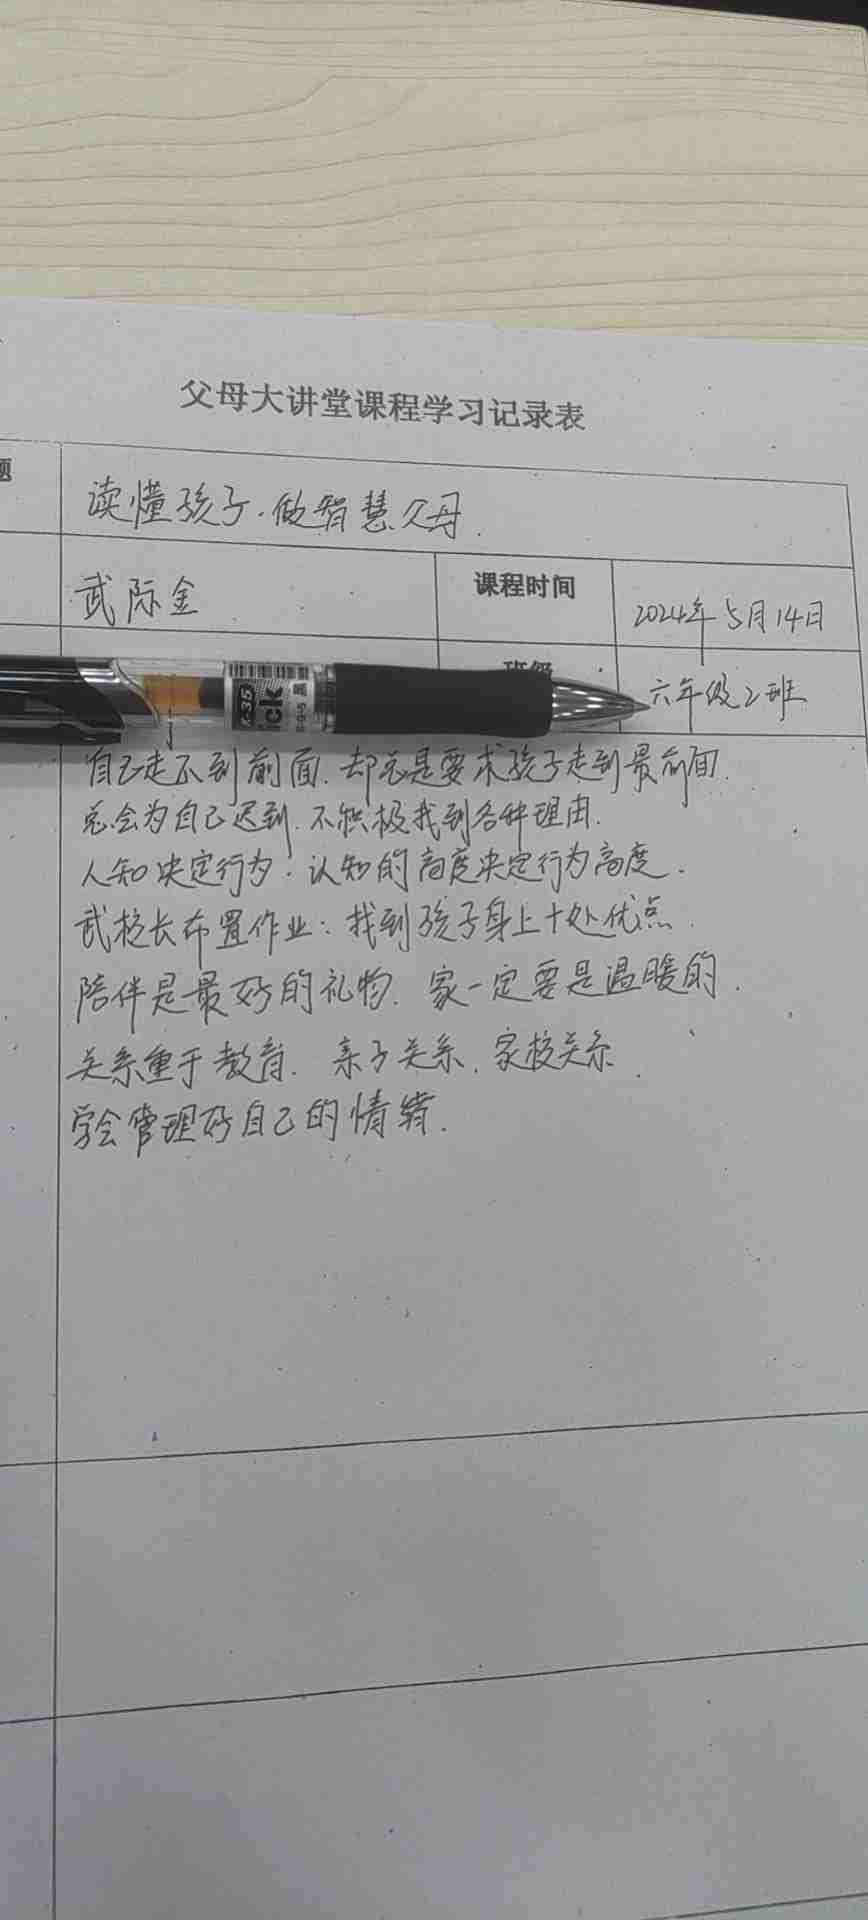 父母大讲堂课程学习记录表
题
读懂孩子.做智慧父母.
武际金
课程时间
2024年5月14日
班级
六年级2班
K-35
ick
自己走不到前面.却总是要求孩子走到最前面.
总会为自己迟到.不积极找到各种理由.
人知决定行为.认知的高度决定行为高度.
武校长布置作业:找到孩子身上十处优点.
陪伴是最好的礼物.家一定要是温暖的.
关系重于教育.亲子关系.家校关系.
学会管理好自己的情绪.